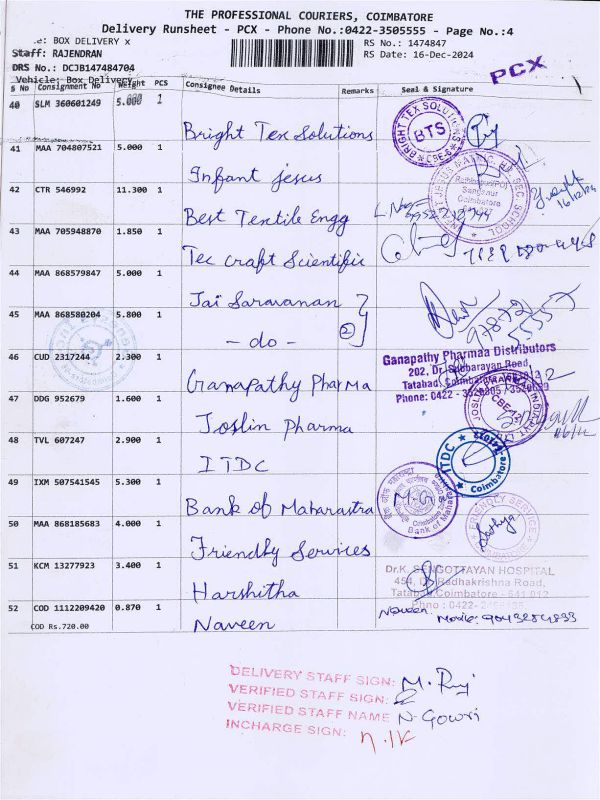 THE PROFESSIONAL COURIERS, COIMBATORE
Delivery Runsheet - PCX - Phone No.:0422-3505555 - Page No.:4
BOX DELIVERY x
RS No.: 1474847
Staff: RAJENDRAN
RS Date: 16-Dec-2024
DRS No.: DCJB147484704
PCX
Vehicle: Box Delivery
S No Consignment No Weight PCS Consignee Details Remarks Seal & Signature
40 SLM 360601249 5.000 1
Bright Tex Solutions
BRIGHT TEX SOLUTIONS
BTS
CBE-6
41 MAA 704807521 5.000 1
Infant jesus
Coimbatore
42 CTR 546992 11.300 1
Best Textile Engg
43 MAA 705948870 1.850 1
Tec craft Scientific
44 MAA 868579847 1 5.000
Jai Saravanan
45 MAA 868580204 5.800 1
- do -
2
46 CUD 2317244 2.300 1
Ganapathy Pharma
Ganapathy Pharmaa Distributors
202, Dr. Subbarayan Road,
Tatabad, Coimbatore
47 DDG 952679 1.600 1
Joslin Pharma
48 TVL 607247 2.900 1
ITDC
ITDC
Coimbatore
49 IXM 507541545 5.300 1
Bank of Maharastra
50 MAA 868185683 4.000 1
Friendly Services
FRIENDLY SERVICES
51 KCM 13277923 3.400 1
Harshitha
Dr.K. SENGOTTAYAN HOSPITAL
454, Dr. Radhakrishna Road,
Tatabad, Coimbatore - 641 012
52 COD 1112209420 0.870 1
Naveen
Naveen
COD Rs.720.00
DELIVERY STAFF SIGN:
VERIFIED STAFF SIGN:
VERIFIED STAFF NAME N. Gowri
INCHARGE SIGN: